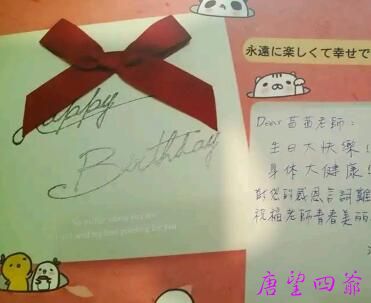 Happy
Birthday
永遠に楽しくて幸せで
Dear 苗苗老師：
生日大快樂！
身体大健康！
對您的感恩言語難
祝福老師青春美丽
唐望四爺